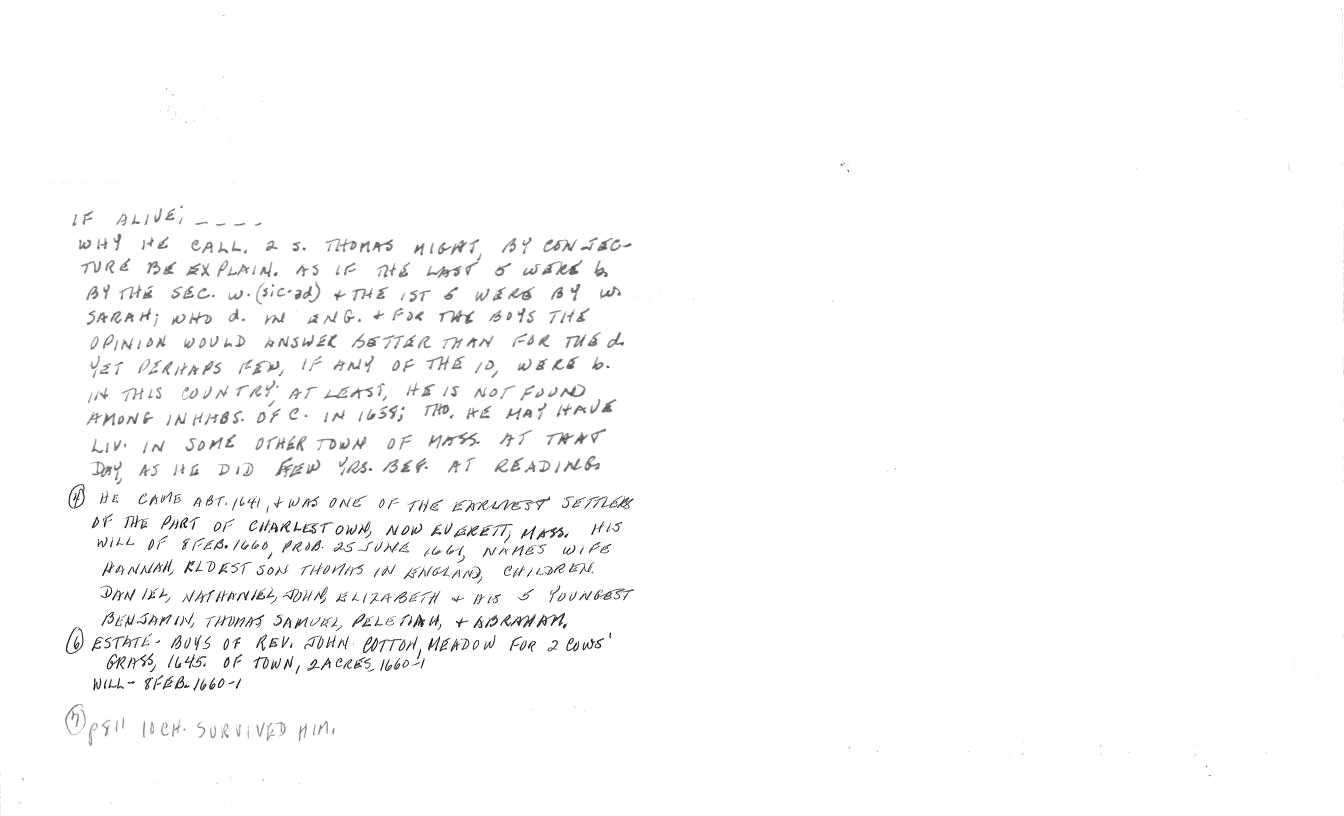 IF ALIVE; _ _ _ _
WHY HE CALL. 2 S. THOMAS MIGHT, BY CONJEC-
TURE BE EXPLAIN. AS IF THE LAST 5 WERE b.
BY THE SEC. w. (sic-ad) + THE 1ST 5 WERE BY W.
SARAH; WHO d. IN ENG. + FOR THE BOYS THE
OPINION WOULD ANSWER BETTER THAN FOR THE d.
YET PERHAPS FEW, IF ANY OF THE 10, WERE b.
IN THIS COUNTRY; AT LEAST, HE IS NOT FOUND
AMONG INHABS. OF C. IN 1658; THO. HE MAY HAVE
LIV. IN SOME OTHER TOWN OF MASS. AT THAT
DAY, AS HE DID FEW YRS. BEF. AT READING.
④ HE CAME ABT. 1641, + WAS ONE OF THE EARLIEST SETTLERS
OF THE PART OF CHARLESTOWN, NOW EVERETT, MASS. HIS
WILL OF 8 FEB. 1660, PROB. 25 JUNE 1661, NAMES WIFE
HANNAH, ELDEST SON THOMAS IN ENGLAND, CHILDREN
DANIEL, NATHANIEL, JOHN, ELIZABETH + HIS 5 YOUNGEST
BENJAMIN, THOMAS SAMUEL, PELETIAH, + ABRAHAM.
⑥ ESTATE - BUYS OF REV. JOHN COTTON, MEADOW FOR 2 COWS'
GRASS, 1645. OF TOWN, 2 ACRES, 1660-1
WILL - 8 FEB. 1660-1
⑦ p811 10 CH. SURVIVED HIM.